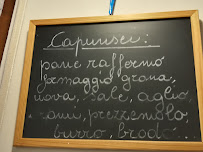 Capunsei:
pane raffermo
formaggio grana,
uova, sale, aglio,
prezzemolo,
burro, brodo...